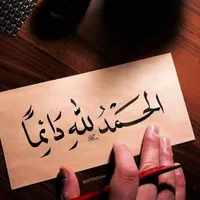 الحَمْدُ للهِ دَائِماً